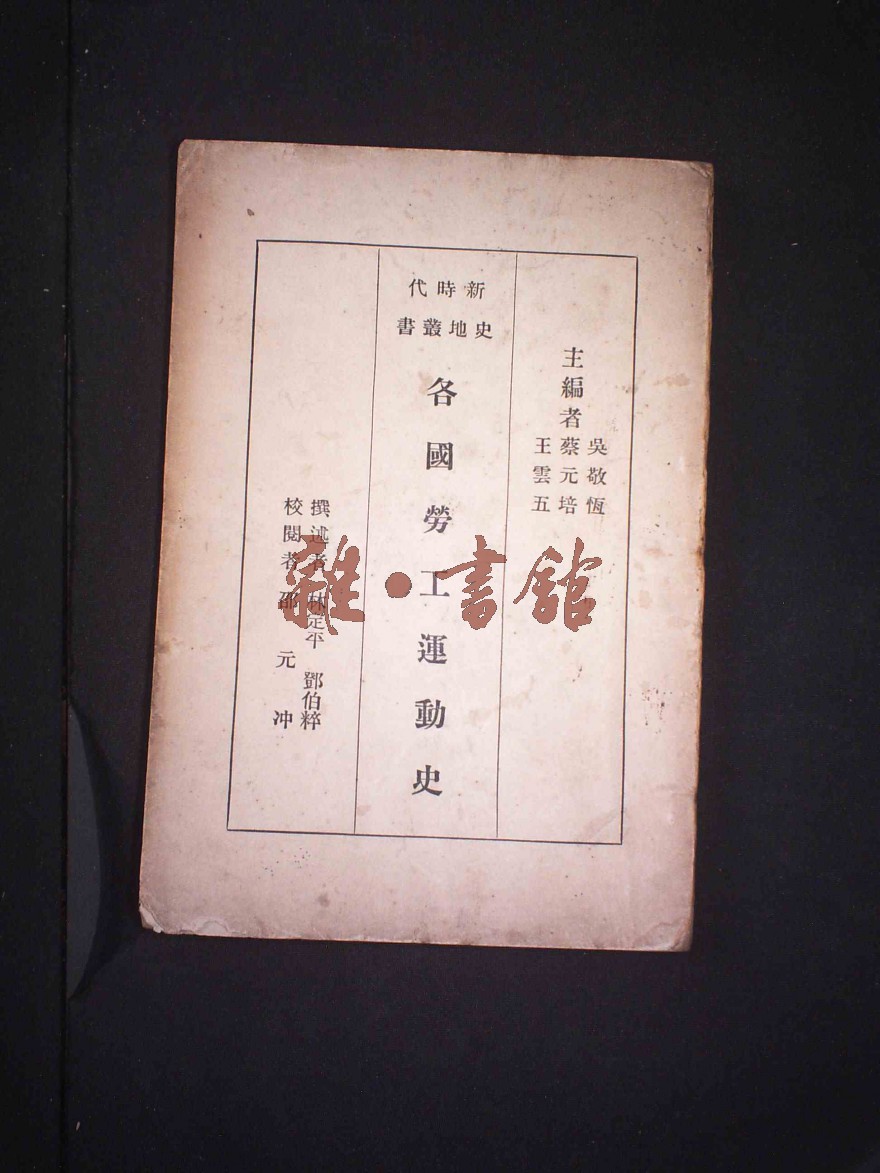 主編者
吳敬恆
蔡元培
王雲五
新時代
史地叢書
各國勞工運動史
撰述者 林定平 鄧伯粹
校閱者 邵元冲
雜•書館